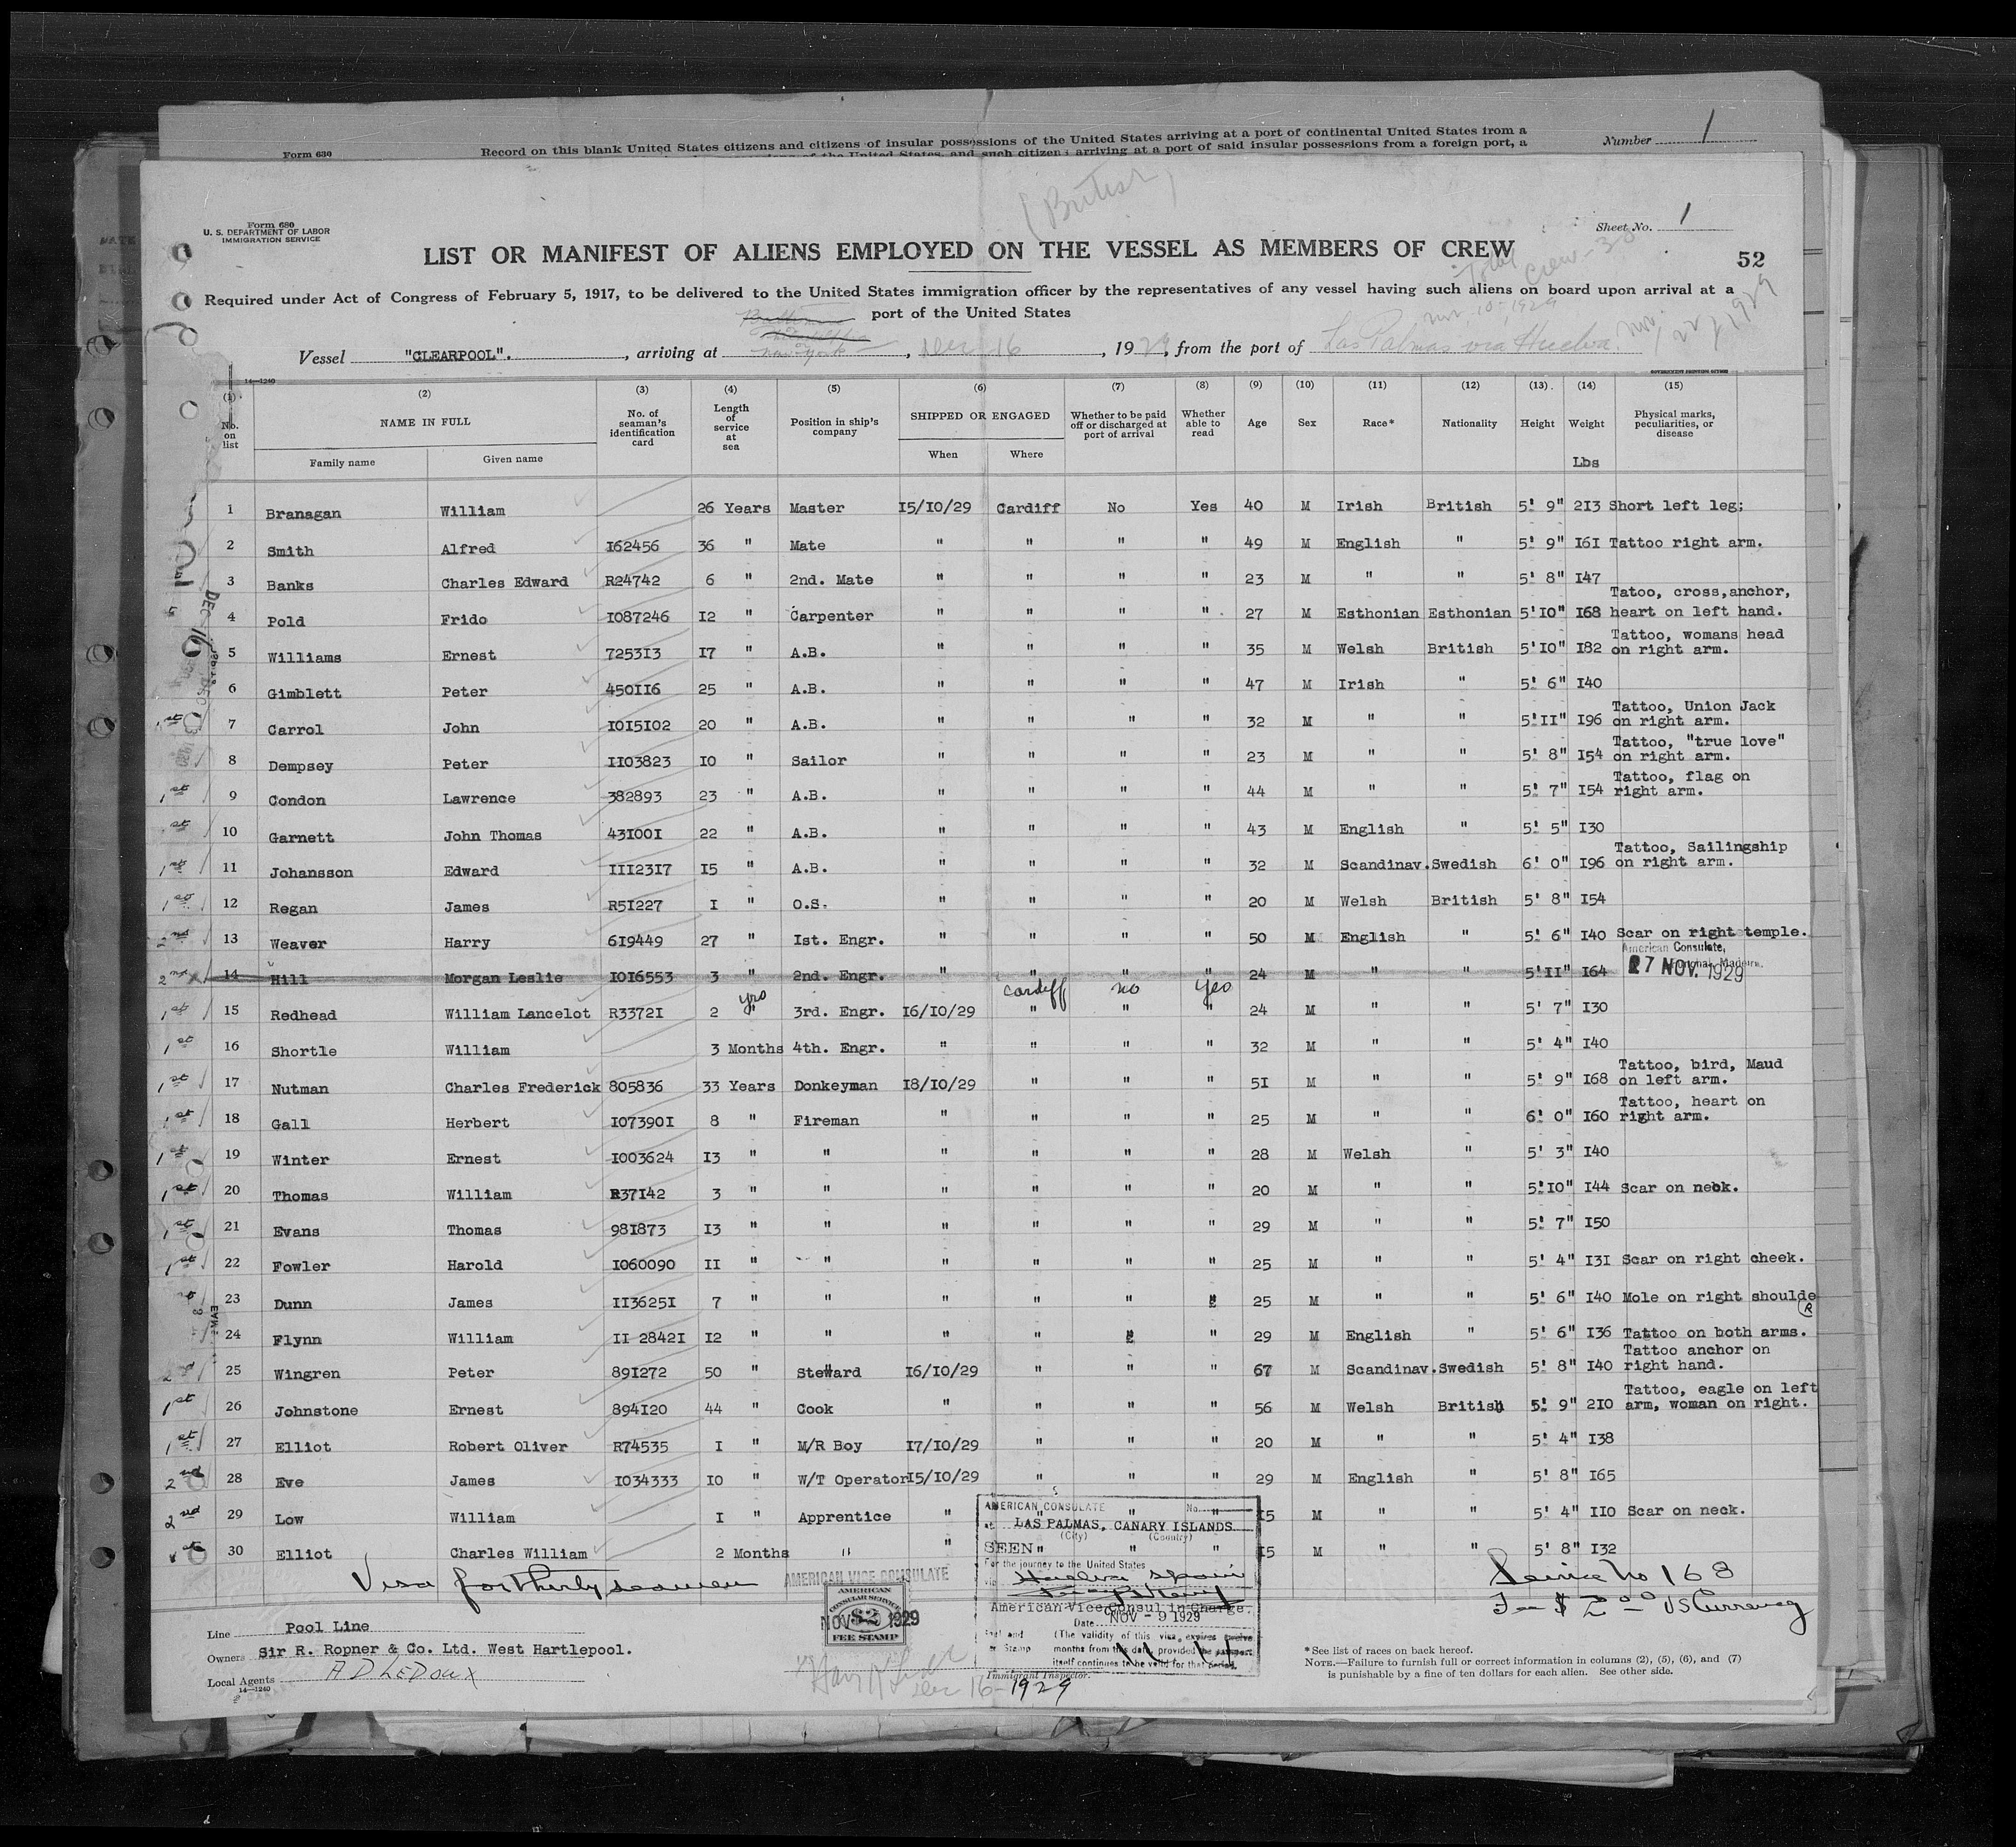 Form 630
Record on this blank United States citizens and citizens of insular possessions of the United States arriving at a port of continental United States from a
Number 1
of the United States, and such citizens arriving at a port of said insular possessions from a foreign port, a
(British)
Form 680
U. S. DEPARTMENT OF LABOR
IMMIGRATION SERVICE
Sheet No. 1
LIST OR MANIFEST OF ALIENS EMPLOYED ON THE VESSEL AS MEMBERS OF CREW
52
Required under Act of Congress of February 5, 1917, to be delivered to the United States immigration officer by the representatives of any vessel having such aliens on board upon arrival at a
port of the United States
Nov. 10-1929
Vessel "CLEARPOOL". , arriving at New York , Dec 16 , 1929, from the port of Las Palmas via Huelva. Nov. 22 1929
14—1240
(1) (2) (3) (4) (5) (6) (7) (8) (9) (10) (11) (12) (13) (14) (15)
No. on list NAME IN FULL No. of seaman's identification card Length of service at sea Position in ship's company SHIPPED OR ENGAGED Whether to be paid off or discharged at port of arrival Whether able to read Age Sex Race* Nationality Height Weight Physical marks, peculiarities, or disease
Family name Given name When Where Lbs
1 Branagan William 26 Years Master 15/10/29 Cardiff No Yes 40 M Irish British 5' 9" 213 Short left leg;
2 Smith Alfred I62456 36 " Mate " " " " 49 M English " 5' 9" I6I Tattoo right arm.
3 Banks Charles Edward R24742 6 " 2nd. Mate " " " " 23 M " " 5' 8" I47
4 Pold Frido I087246 I2 " Carpenter " " " " 27 M Esthonian Esthonian 5'IO" I68 Tatoo, cross,anchor, heart on left hand.
5 Williams Ernest 7253I3 I7 " A.B. " " " " 35 M Welsh British 5'IO" I82 Tattoo, womans head on right arm.
6 Gimblett Peter 450II6 25 " A.B. " " " " 47 M Irish " 5' 6" I40
7 Carrol John I0I5I02 20 " A.B. " " " " 32 M " " 5'II" I96 Tattoo, Union Jack on right arm.
8 Dempsey Peter II03823 IO " Sailor " " " " 23 M " " 5' 8" I54 Tattoo, "true love" on right arm.
1st 9 Condon Lawrence 382893 23 " A.B. " " " " 44 M " " 5' 7" I54 Tattoo, flag on right arm.
1st 10 Garnett John Thomas 43I00I 22 " A.B. " " " " 43 M English " 5' 5" I30
1st 11 Johansson Edward III23I7 I5 " A.B. " " " " 32 M Scandinav. Swedish 6' 0" I96 Tattoo, Sailingship on right arm.
1st 12 Regan James R5I227 I " O.S. " " " " 20 M Welsh British 5' 8" I54
2nd 13 Weaver Harry 6I9449 27 " Ist. Engr. " " " " 50 M English " 5' 6" I40 Scar on right temple.
American Consulate,
2nd 14 Hill Morgan Leslie I0I6553 3 " 2nd. Engr. " " " " 24 M " " 5'II" I64 27 NOV. 1929
yrs Cardiff no yes
1st 15 Redhead William Lancelot R3372I 2 " 3rd. Engr. I6/10/29 " " " 24 M " " 5' 7" I30
1st 16 Shortle William 3 Months 4th. Engr. " " " " 32 M " " 5' 4" I40
1st 17 Nutman Charles Frederick 805836 33 Years Donkeyman I8/10/29 " " " 5I M " " 5' 9" I68 Tattoo, bird, Maud on left arm.
1st 18 Gall Herbert I07390I 8 " Fireman " " " " 25 M " " 6' 0" I60 Tattoo, heart on right arm.
1st 19 Winter Ernest I003624 I3 " " " " " " 28 M Welsh " 5' 3" I40
1st 20 Thomas William R37I42 3 " " " " " " 20 M " " 5'IO" I44 Scar on neck.
1st 21 Evans Thomas 98I873 I3 " " " " " " 29 M " " 5' 7" I50
1st 22 Fowler Harold I060090 II " " " " " " 25 M " " 5' 4" I3I Scar on right cheek.
23 Dunn James II3625I 7 " " " " " " 25 M " " 5' 6" I40 Mole on right shoulde R
24 Flynn William II 2842I I2 " " " " " " 29 M English " 5' 6" I36 Tattoo on both arms.
2nd 25 Wingren Peter 89I272 50 " Steward I6/10/29 " " " 67 M Scandinav. Swedish 5' 8" I40 Tattoo anchor on right hand.
1st 26 Johnstone Ernest 894I20 44 " Cook " " " " 56 M Welsh British 5' 9" 2IO Tattoo, eagle on left arm, woman on right.
1st 27 Elliot Robert Oliver R74535 I " M/R Boy I7/10/29 " " " 20 M " " 5' 4" I38
2nd 28 Eve James I034333 IO " W/T Operator I5/10/29 " " " 29 M English " 5' 8" I65
2nd 29 Low William I " Apprentice " " " " I5 M " " 5' 4" IIO Scar on neck.
30 Elliot Charles William 2 Months " " " " " I5 M " " 5' 8" I32
AMERICAN CONSULATE No.
at LAS PALMAS, CANARY ISLANDS
(City) (Country)
SEEN
For the journey to the United States
via Huelva Spain
American Vice Consul in Charge.
Date NOV - 9 1929
Seal and Stamp
(The validity of this visa, expires twelve
months from this date, provided the passport
itself continues to be valid for that period.
Visa for thirty seamen
AMERICAN VICE CONSULATE
AMERICAN
CONSULAR SERVICE
$2
NOV 1929
FEE STAMP
Service No 168
Fee $ 2 00 US Currency
Line Pool Line
Owners Sir R. Ropner & Co. Ltd. West Hartlepool.
Local Agents A D LEDOUX
14—1240
Dec 16-1929
Immigrant Inspector.
*See list of races on back hereof.
NOTE.—Failure to furnish full or correct information in columns (2), (5), (6), and (7)
is punishable by a fine of ten dollars for each alien. See other side.